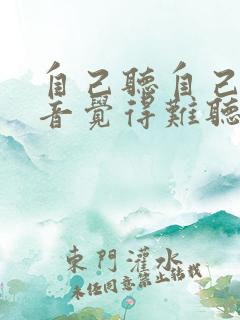 自己聽自己
音覺得難聽
東門灌水
未经同意禁止转载